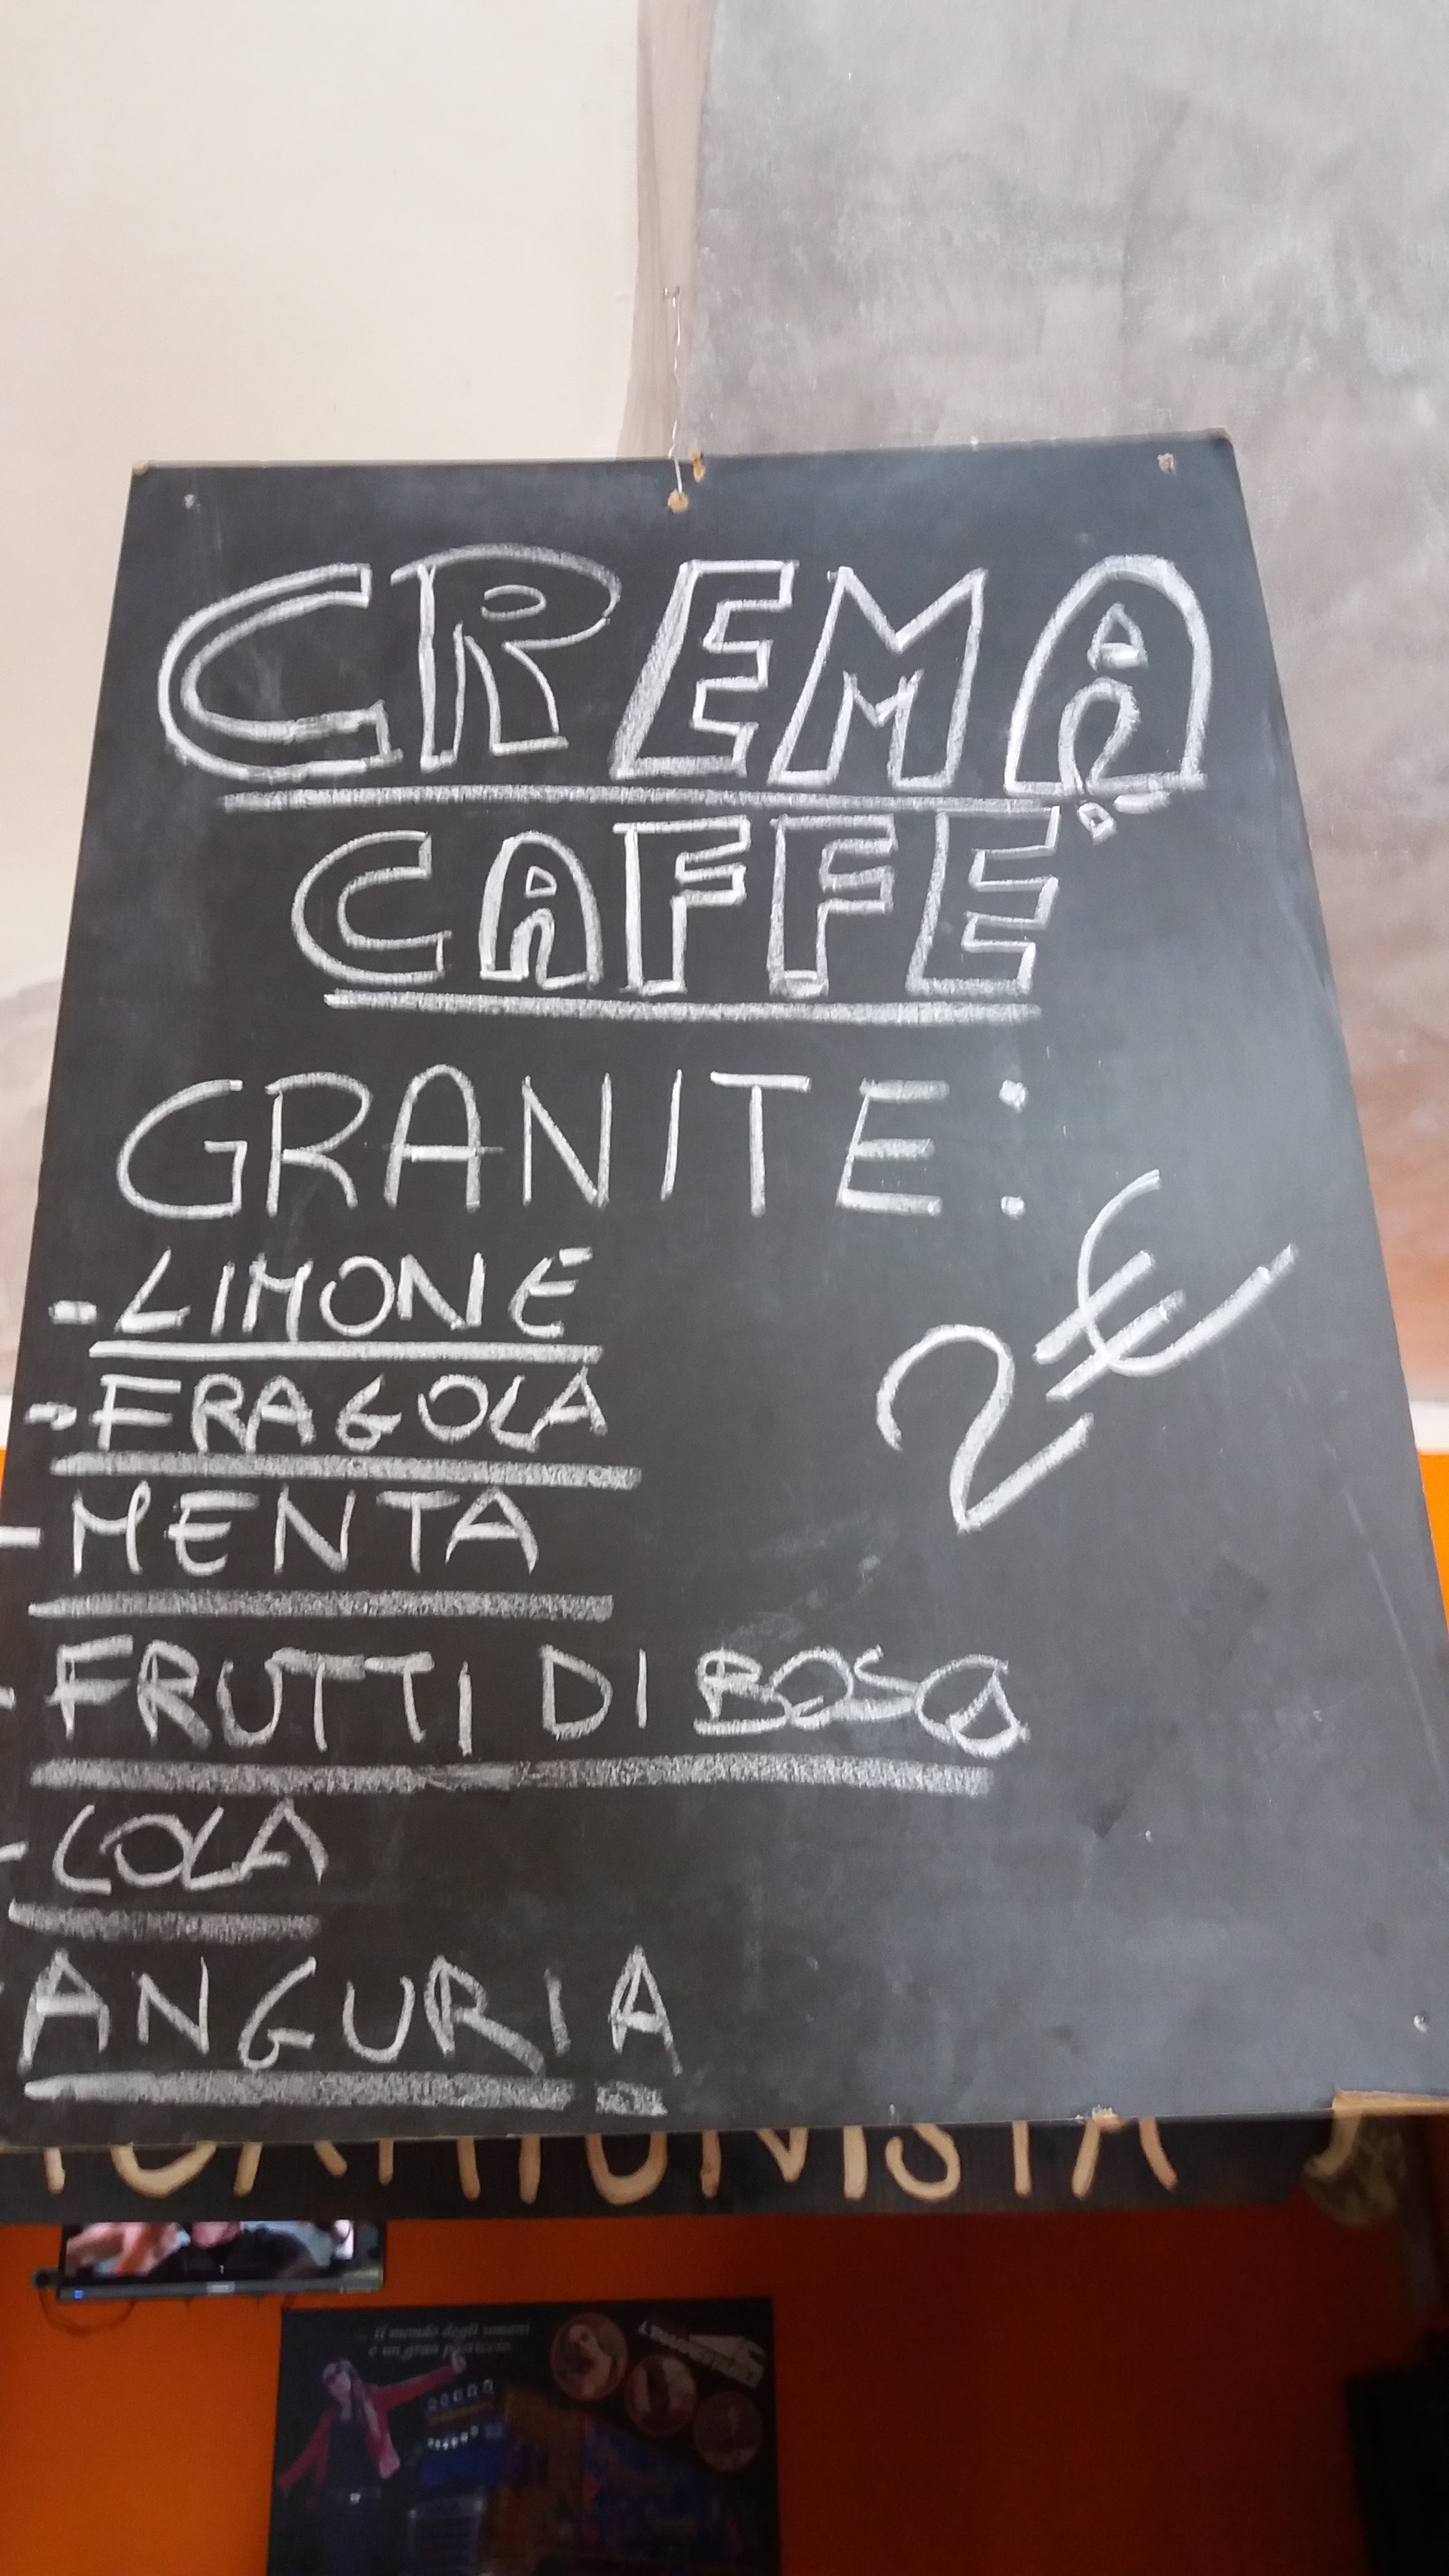 CREMA
CAFFE'
GRANITE:
- LIMONE
- FRAGOLA
2€
- MENTA
- FRUTTI DI BOSCO
- COLA
- ANGURIA
... il mondo degli umani
è un gran pasticcio